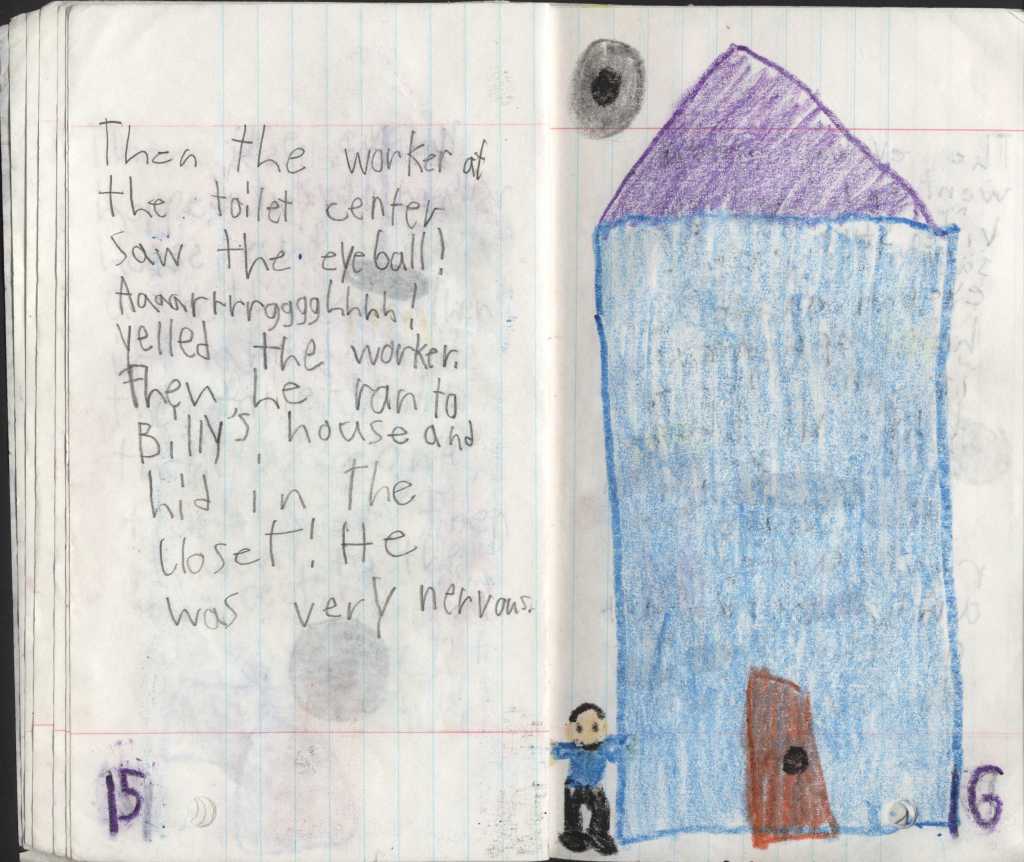 Then the worker at
the toilet center
saw the eyeball!
Aaaarrrrgggghhhh!
yelled the worker.
Then, he ran to
Billy's house and
hid in the
closet! He
was very nervous.
15
16